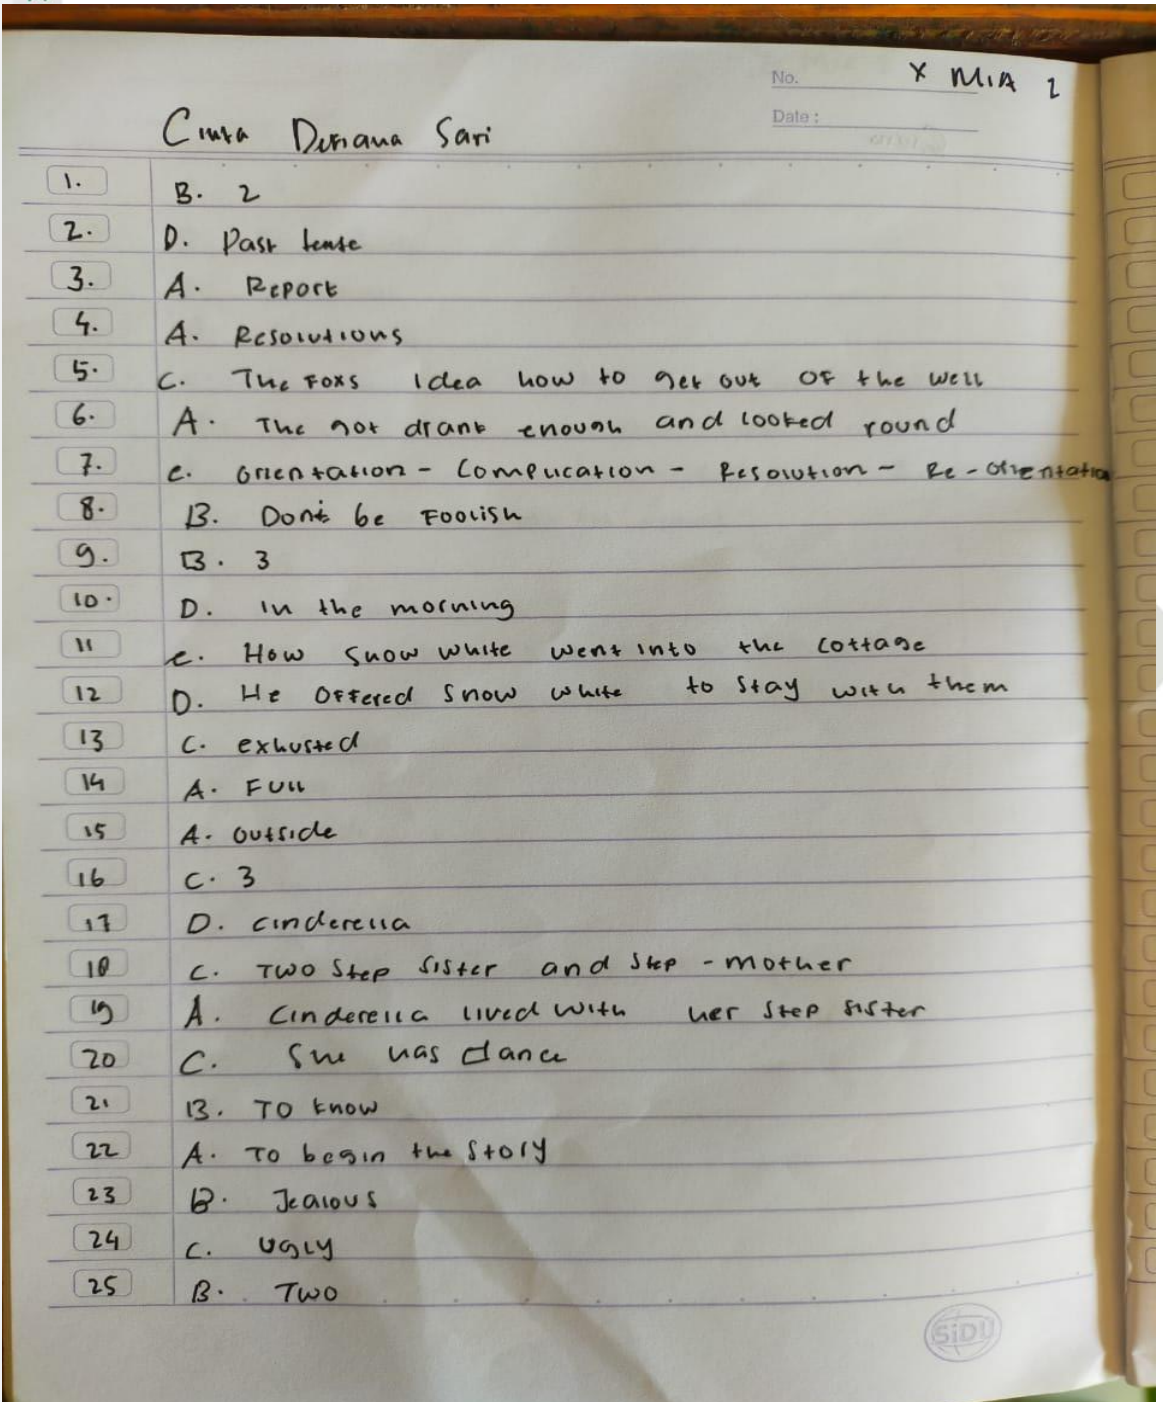 No. X MIA 2
Date :
Cinta Deriana Sari
1. B. 2
2. D. Past tense
3. A. Report
4. A. Resolutions
5. C. The Foxs Idea how to get out of the well
6. A. The got drank enough and looked round
7. C. Orientation - Complication - Resolution - Re-orientation
8. B. Dont be Foolish
9. B. 3
10. D. In the morning
11 C. How Snow white went into the cottage
12 D. He offered Snow white to stay with them
13 C. exhusted
14 A. Full
15 A. outside
16 C. 3
17 D. cinderella
18 C. Two step sister and step-mother
19 A. Cinderella lived with her step sister
20 C. She has dance
21 B. To know
22 A. To begin the story
23 B. Jealous
24 C. Ugly
25 B. Two
SiDU